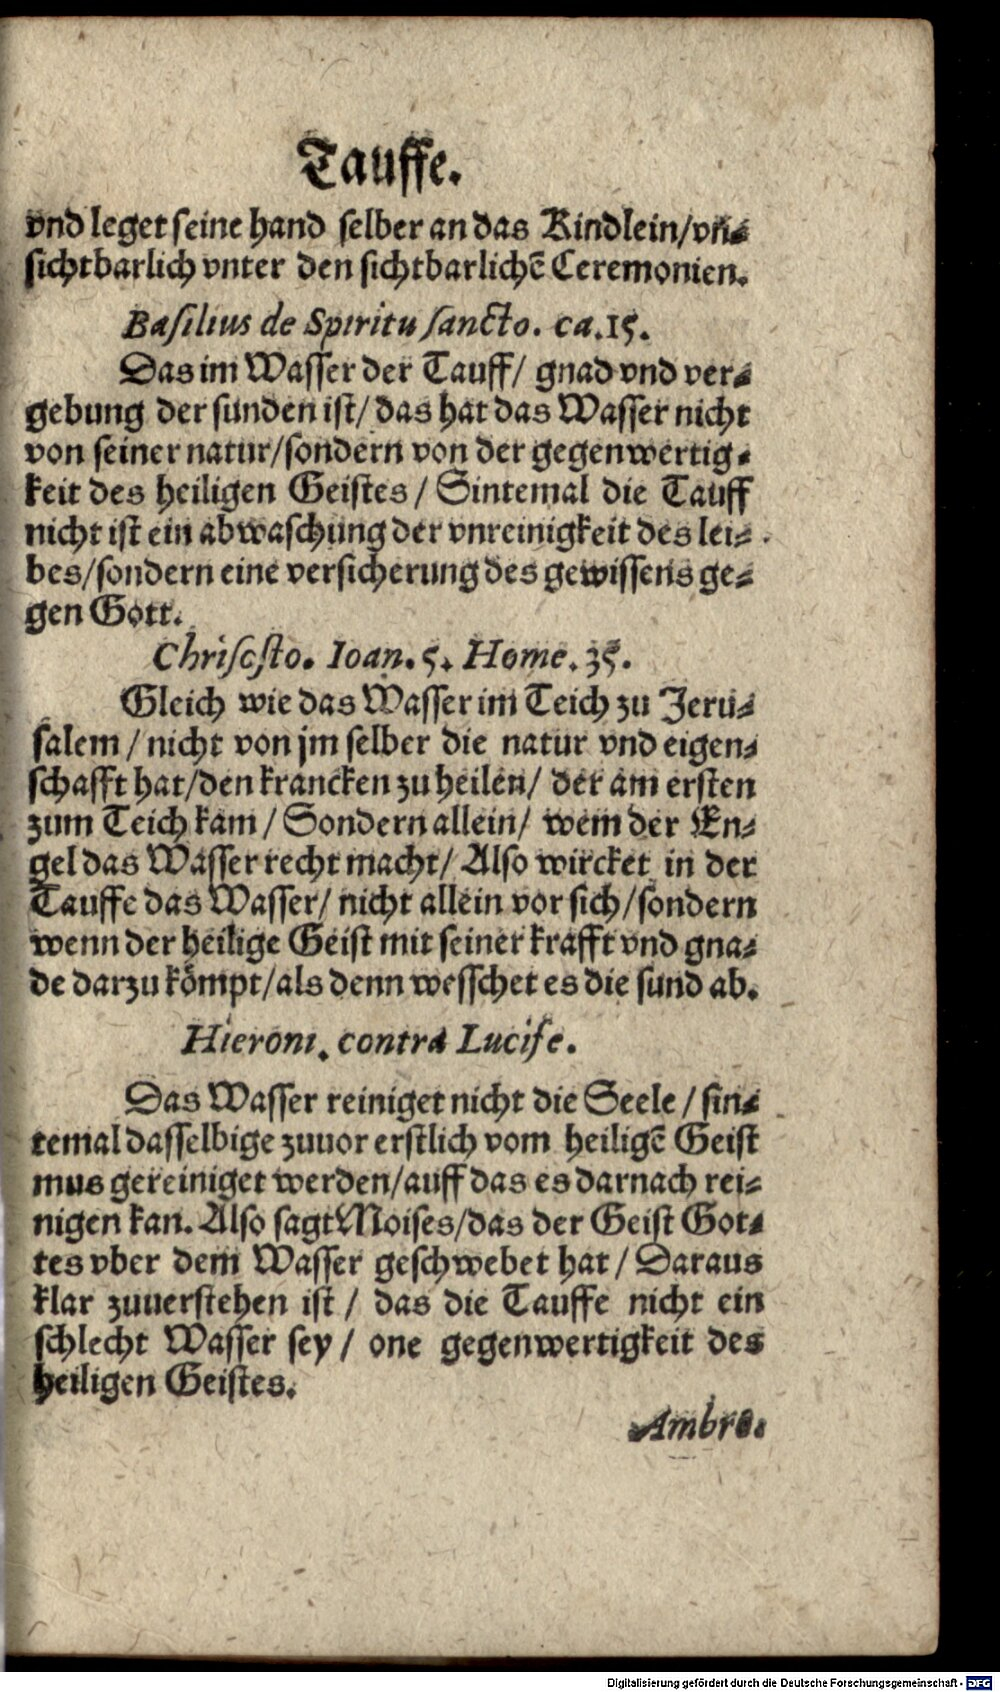 Tauffe.
vnd leget seine hand selber an das Kindlein/vn-
sichtbarlich vnter den sichtbarlichē Ceremonien.
Basilius de Spiritu sancto. ca.15.
Das im Wasser der Tauff/ gnad vnd ver-
gebung der sunden ist/ das hat das Wasser nicht
von seiner natur/sondern von der gegenwertig-
keit des heiligen Geistes / Sintemal die Tauff
nicht ist ein abwaschung der vnreinigkeit des lei-
bes/sondern eine versicherung des gewissens ge-
gen Gott.
Chriscsto. Ioan. 5. Home. 35.
Gleich wie das Wasser im Teich zu Jeru-
salem / nicht von jm selber die natur vnd eigen-
schafft hat/den krancken zu heilen/ der am ersten
zum Teich kam / Sondern allein/ wem der En-
gel das Wasser recht macht/ Also wircket in der
Tauffe das Wasser/ nicht allein vor sich/sondern
wenn der heilige Geist mit seiner krafft vnd gna-
de darzu kömpt/als denn wesschet es die sund ab.
Hieroni. contra Lucife.
Das Wasser reiniget nicht die Seele / sin-
temal dasselbige zuuor erstlich vom heiligē Geist
mus gereiniget werden/auff das es darnach rei-
nigen kan. Also sagt Moises/das der Geist Got-
tes vber dem Wasser geschwebet hat / Daraus
klar zuuerstehen ist / das die Tauffe nicht ein
schlecht Wasser sey / one gegenwertigkeit des
heiligen Geistes.
Ambro.
Digitalisierung gefördert durch die Deutsche Forschungsgemeinschaft - DFG